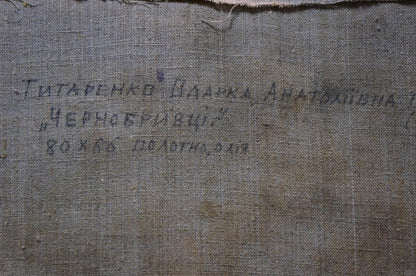 Титаренко Одарка Анатоліївна
„Чернобривці"
80 х 60 полотно, олія